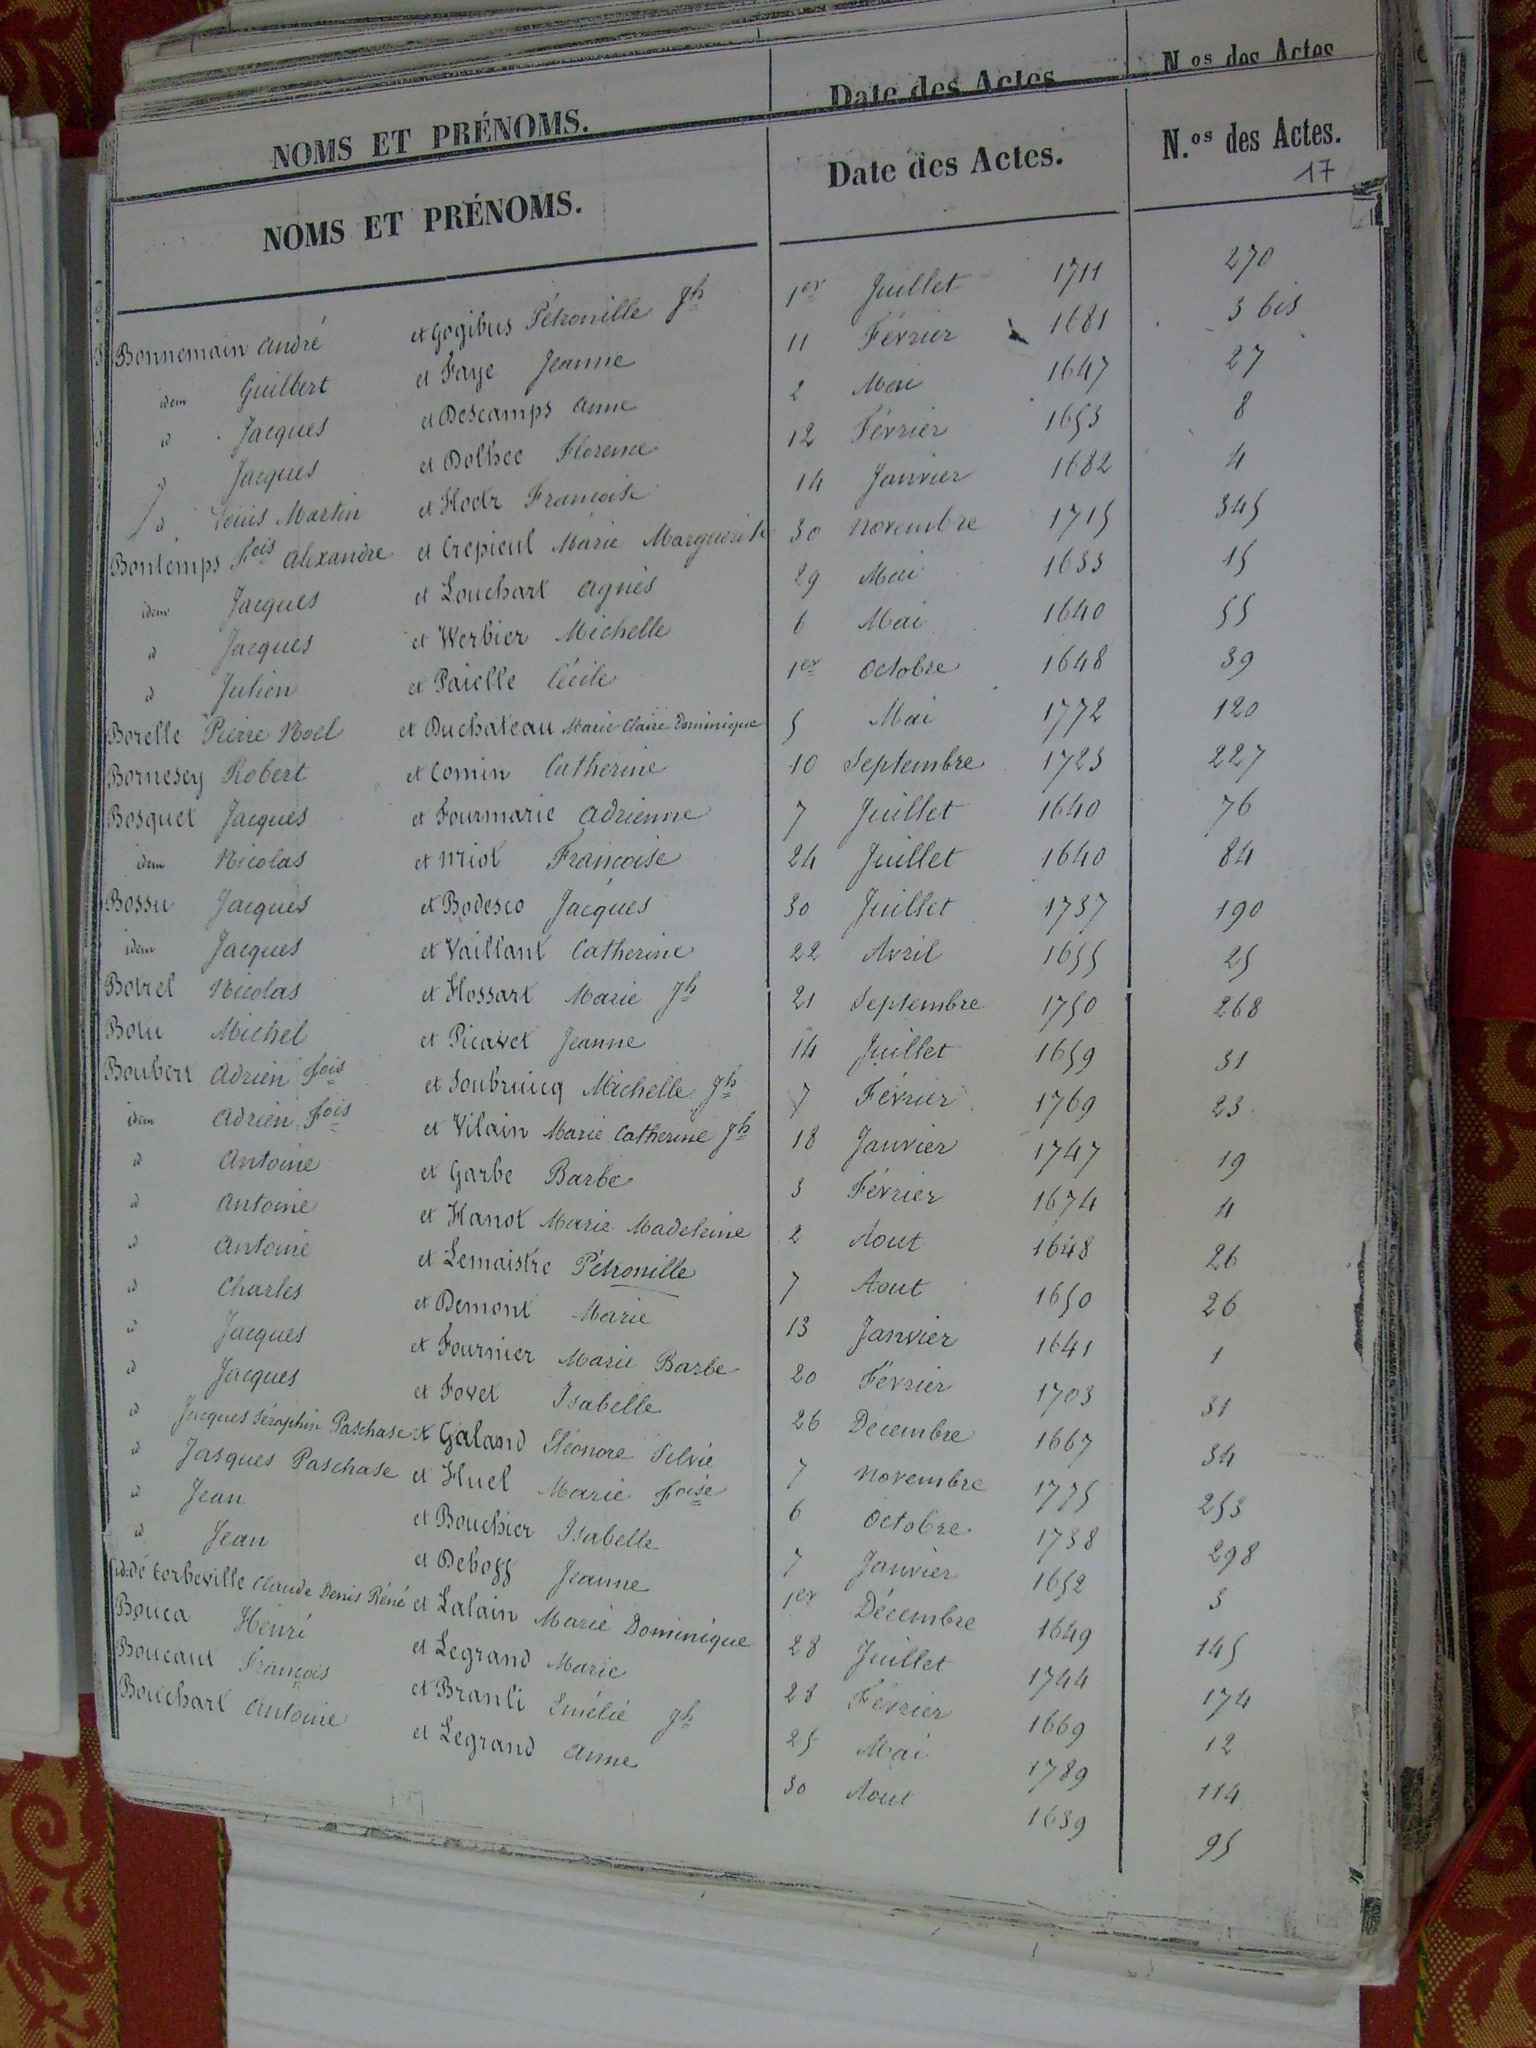 NOMS ET PRÉNOMS. Date des Actes N.os des Actes
NOMS ET PRÉNOMS. Date des Actes. N.os des Actes.
17
Bonnemain André et Gogibus Pétronille Jh 1er Juillet 1711 270
idem Guilbert et Faye Jeanne 11 Février 1681 3 bis
id Jacques et Descamps Anne 2 Mai 1647 27
id Jacques et Dolhee Florence 12 Février 1653 8
id Louis Martin et Hoetr Francoise 14 Janvier 1682 4
Bontemps Fois Alexandre et Crepieul Marie Marguerite 30 Novembre 1715 345
idem Jacques et Louchart Agnès 29 Mai 1633 15
id Jacques et Werbier Michelle 6 Mai 1640 55
id Julien et Paielle Cécile 1er Octobre 1648 39
Borelle Pierre Noel et Duchateau Marie Claire Dominique 5 Mai 1772 120
Bornesey Robert et Comin Catherine 10 Septembre 1723 227
Bosquet Jacques et Fourmarie Adrienne 7 Juillet 1640 76
idem Nicolas et Miot Francoise 24 Juillet 1640 84
Bossu Jacques et Bodesco Jacques 30 Juillet 1737 190
idem Jacques et Vaillant Catherine 22 Avril 1655 25
Botrel Nicolas et Hossart Marie Jh 21 Septembre 1750 268
Botu Michel et Picavet Jeanne 14 Juillet 1659 31
Boubert Adrien Fois et Soubruicq Michelle Jh 7 Février 1769 23
idem Adrien Fois et Vilain Marie Catherine Jh 18 Janvier 1747 19
id Antoine et Garbe Barbe 3 Février 1674 4
id Antoine et Hanot Marie Madeleine 2 Aout 1648 26
id Antoine et Lemaistre Pétronille 7 Aout 1650 26
id Charles et Demont Marie 13 Janvier 1641 1
id Jacques et Fournier Marie Barbe 20 Février 1703 31
id Jacques et Fovet Isabelle 26 Décembre 1667 34
id Jacques Séraphin Paschase et Galand Eléonore Silvie 7 Novembre 1775 253
id Jasques Paschase et Huel Marie Foise 6 Octobre 1738 298
id Jean et Bouchier Isabelle 7 Janvier 1652 3
id Jean et Debogg Jeanne 1er Décembre 1649 145
id. de Corbeville Claude Denis Réné et Lalain Marie Dominique 28 Juillet 1744 174
Bouca Henri et Legrand Marie 28 Février 1669 12
Boucaut François et Branli Emélie Jh 25 Mai 1789 114
Bouchart Antoine et Legrand Anne 30 Aout 1639 95